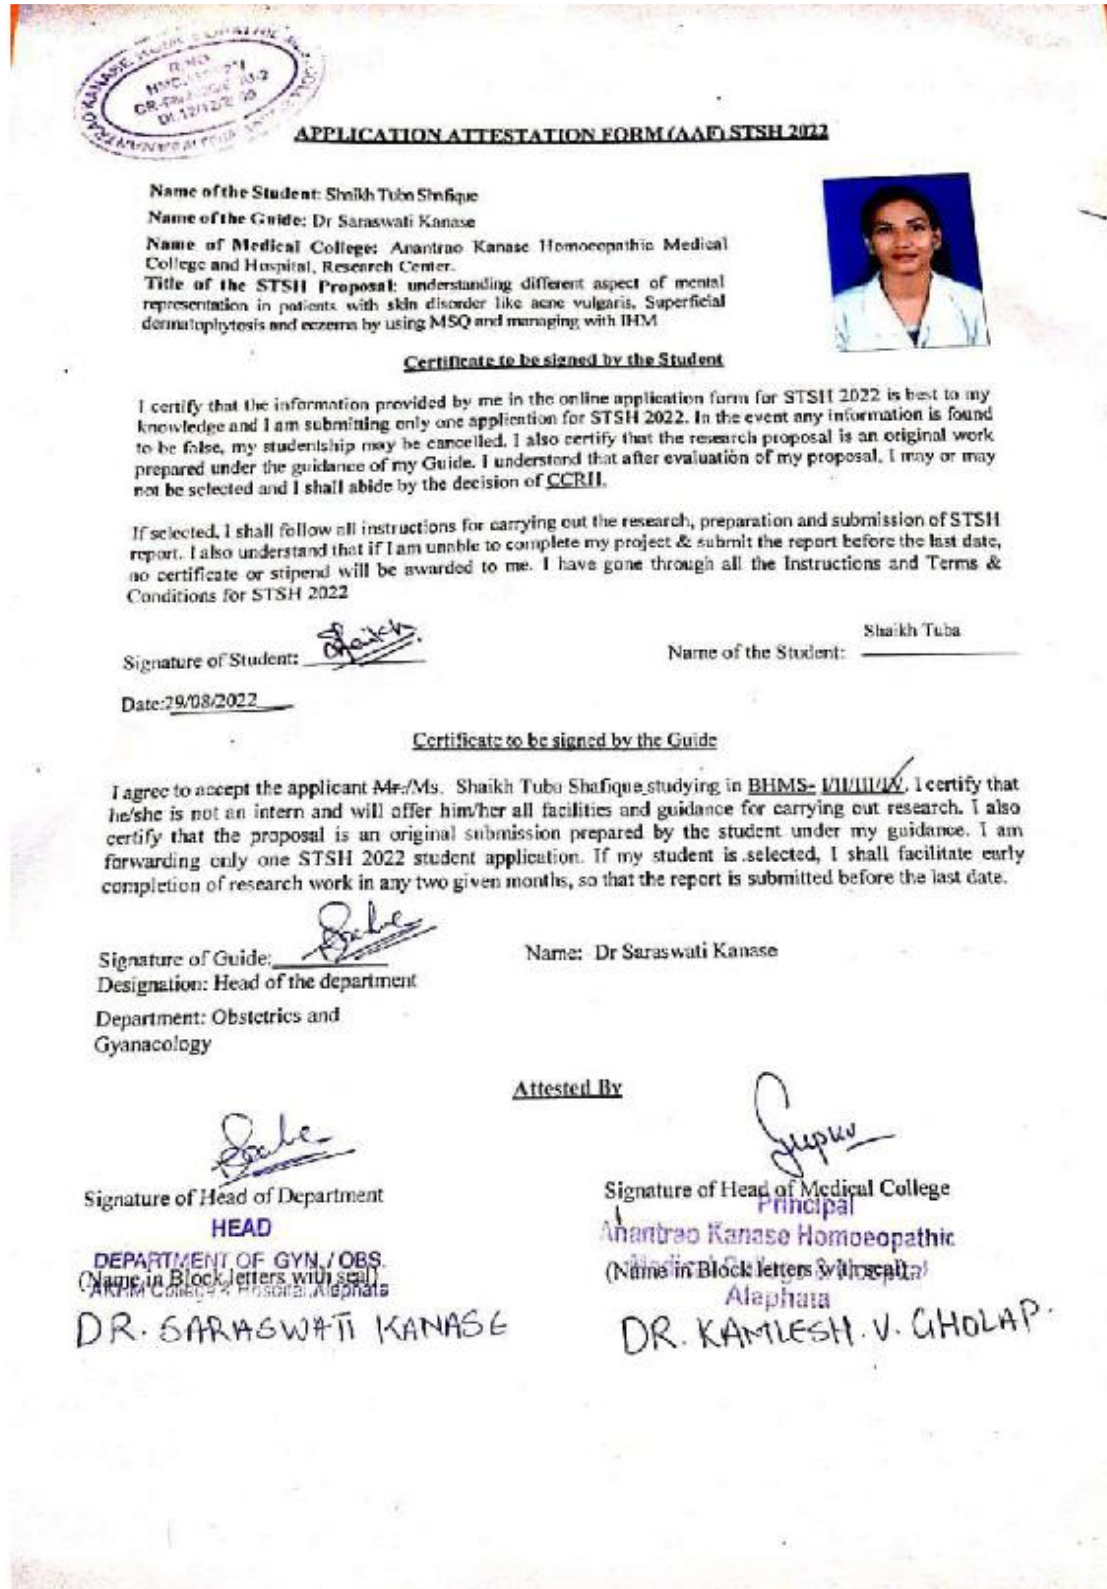 APPLICATION ATTESTATION FORM (AAF) STSH 2022
Name of the Student: Shaikh Tuba Shafique
Name of the Guide: Dr Saraswati Kanase
Name of Medical College: Anantrao Kanase Homoeopathic Medical
College and Hospital, Research Center.
Title of the STSH Proposal: understanding different aspect of mental
representation in patients with skin disorder like acne vulgaris, Superficial
dermatophytosis and eczema by using MSQ and managing with IHM
Certificate to be signed by the Student
I certify that the information provided by me in the online application form for STSH 2022 is best to my
knowledge and I am submitting only one application for STSH 2022. In the event any information is found
to be false, my studentship may be cancelled. I also certify that the research proposal is an original work
prepared under the guidance of my Guide. I understand that after evaluation of my proposal, I may or may
not be selected and I shall abide by the decision of CCRH.
If selected, I shall follow all instructions for carrying out the research, preparation and submission of STSH
report. I also understand that if I am unable to complete my project & submit the report before the last date,
no certificate or stipend will be awarded to me. I have gone through all the Instructions and Terms &
Conditions for STSH 2022
Signature of Student: Shaikh
Name of the Student: Shaikh Tuba
Date:29/08/2022
Certificate to be signed by the Guide
I agree to accept the applicant Mr./Ms. Shaikh Tuba Shafique studying in BHMS- I/II/III/IV. I certify that
he/she is not an intern and will offer him/her all facilities and guidance for carrying out research. I also
certify that the proposal is an original submission prepared by the student under my guidance. I am
forwarding only one STSH 2022 student application. If my student is selected, I shall facilitate early
completion of research work in any two given months, so that the report is submitted before the last date.
Signature of Guide:
Name: Dr Saraswati Kanase
Designation: Head of the department
Department: Obstetrics and
Gyanacology
Attested By
Signature of Head of Department
HEAD
DEPARTMENT OF GYN./OBS.
(Name in Block letters with seal)
DR. SARASWATI KANASE
Signature of Head of Medical College
Principal
Anantrao Kanase Homoeopathic
(Name in Block letters with seal)
Alephata
DR. KAMLESH. V. GHOLAP.